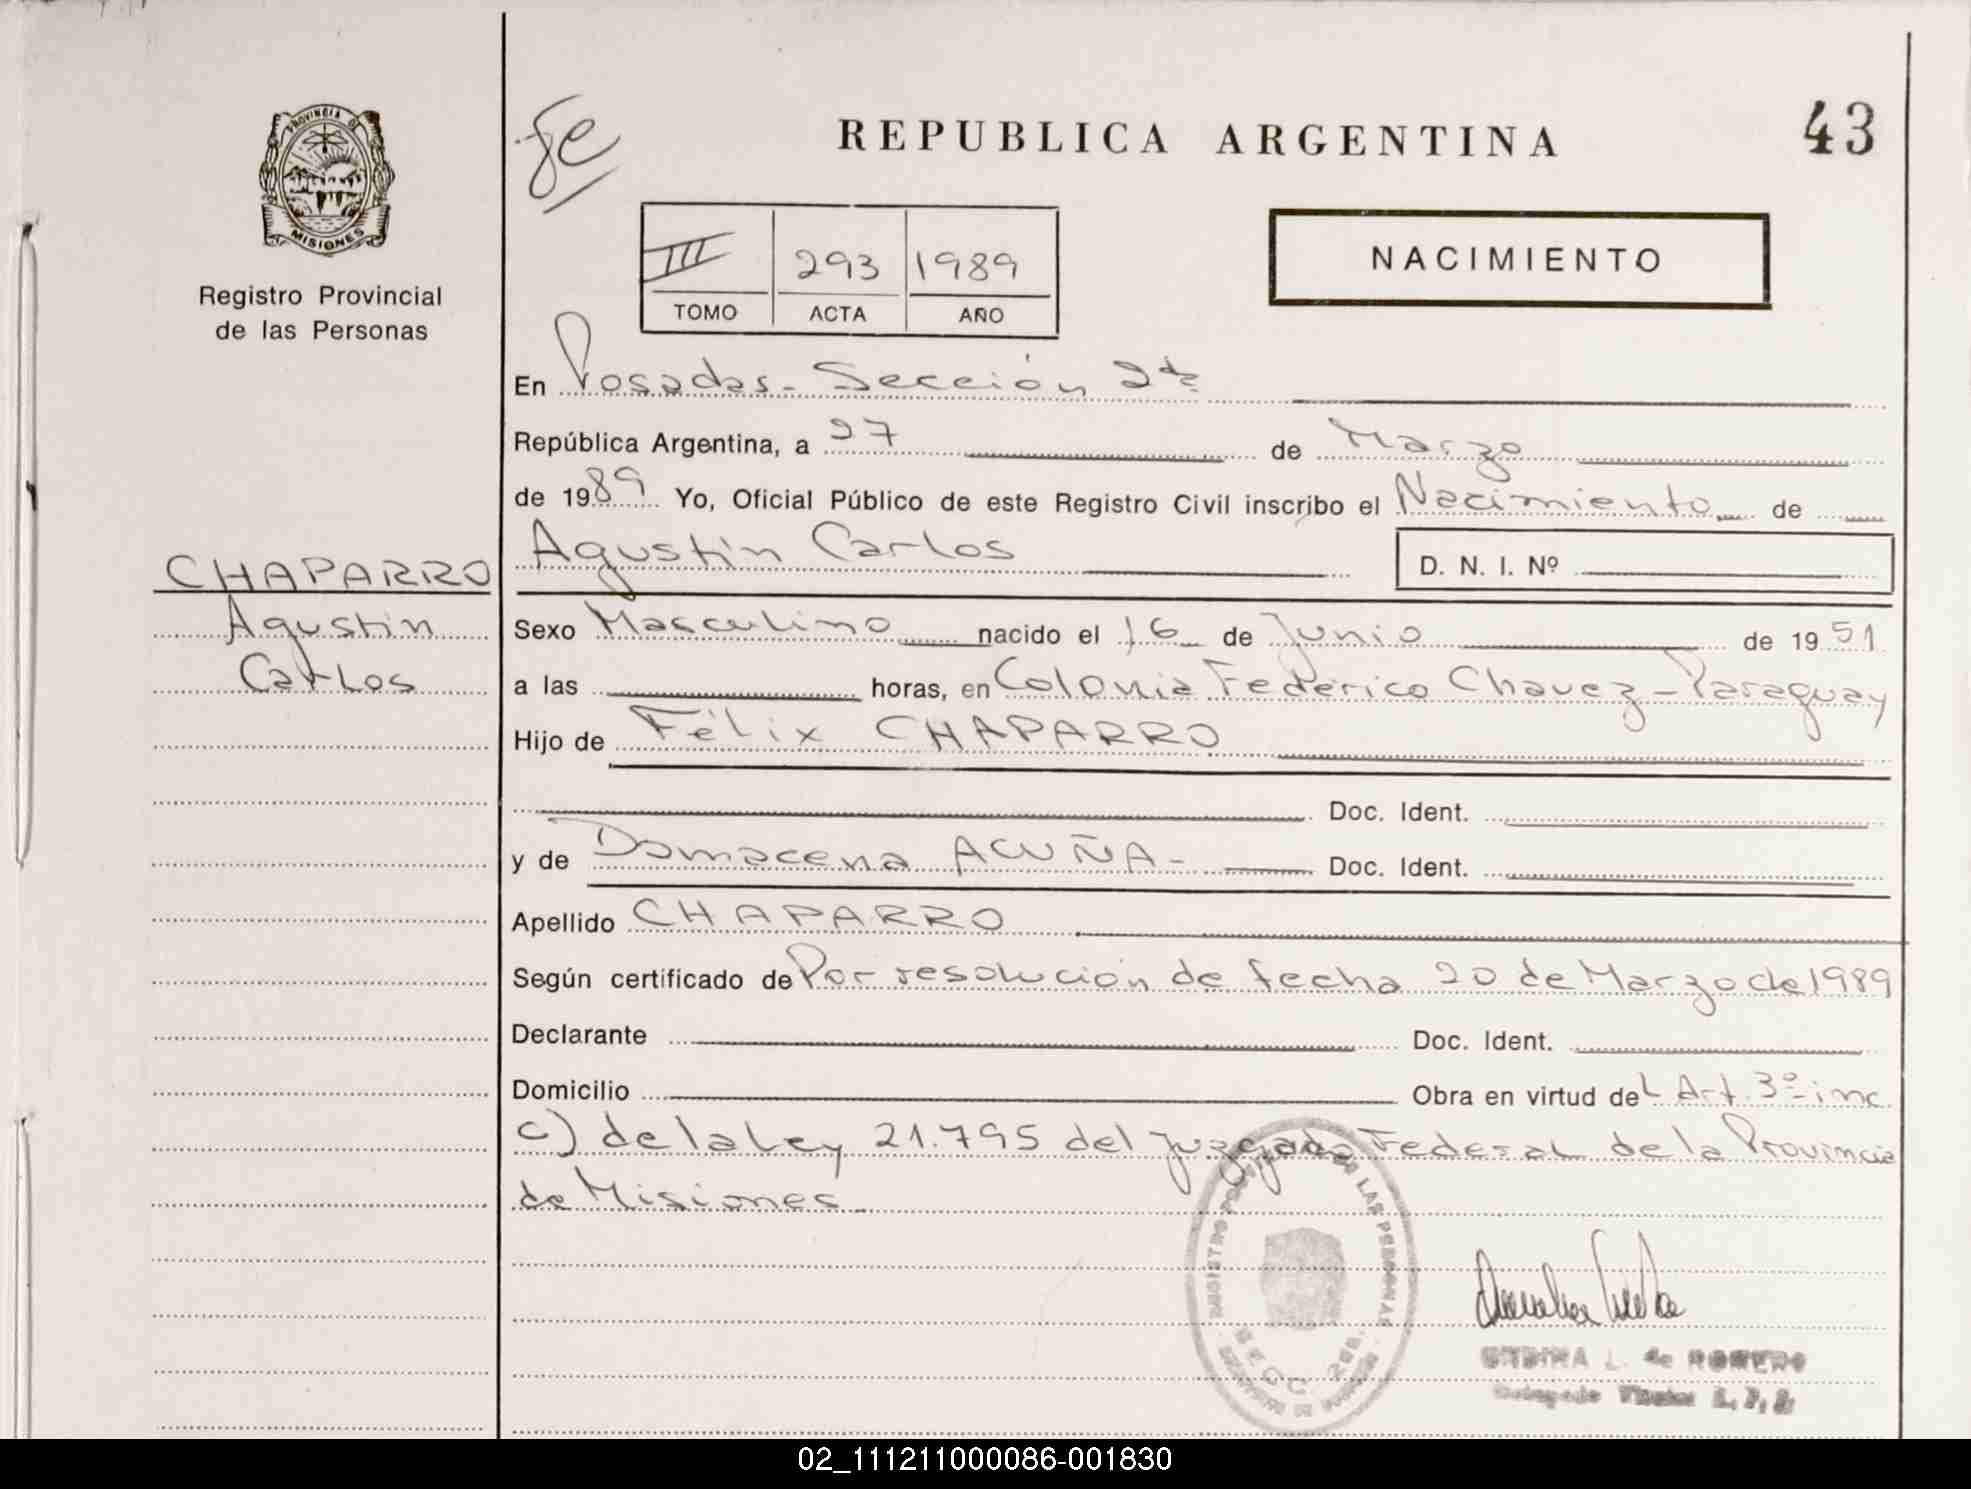 PROVINCIA DE
MISIONES
Registro Provincial
de las Personas
CHAPARRO
Agustín
Carlos
REPUBLICA ARGENTINA
43
III 293 1989
TOMO ACTA AÑO
NACIMIENTO
En Posadas - Sección 2da
República Argentina, a 27 de Marzo
de 1989 Yo, Oficial Público de este Registro Civil inscribo el Nacimiento de
Agustín Carlos D. N. I. Nº
Sexo Masculino nacido el 16 de Junio de 1951
a las horas, en Colonia Federico Chavez - Paraguay
Hijo de Félix CHAPARRO
Doc. Ident.
y de Damacena ACUÑA - Doc. Ident.
Apellido CHAPARRO
Según certificado de Por resolución de fecha 20 de Marzo de 1989
Declarante Doc. Ident.
Domicilio Obra en virtud del Art. 3º inc.
c) de la Ley 21.795 del Juzgado Federal de la Provincia
de Misiones
LAS PERSONAS
L. de ROMERO
02_111211000086-001830